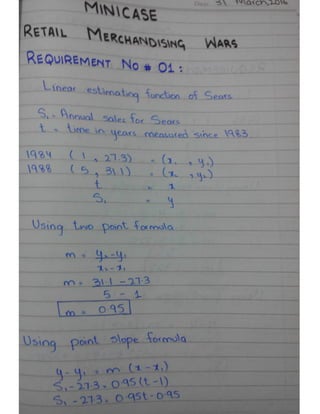 Date: 31 March, 2016
MINICASE
RETAIL MERCHANDISING WARS
REQUIREMENT NO # 01 :
Linear estimating function of Sears
S₁ = Annual sales for Sears
t = time in years measured since 1983
1984 ( 1 , 27.3) = (x₁ , y₁)
1988 ( 5 , 31.1) = (x₂ , y₂)
t = x
S₁ = y
Using two point formula
m = y₂-y₁
x₂-x₁
m = 31.1 - 27.3
5 - 1
m = 0.95
Using point slope formula
y-y₁ = m (x-x₁)
S₁-27.3 = 0.95(t-1)
S₁-27.3 = 0.95t-0.95